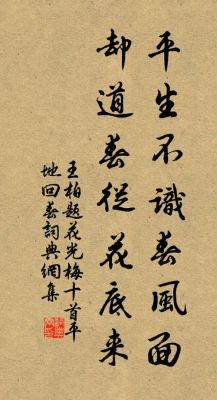 平生不識春風面
却道春從花底来
王柏題花光梅十首平
地回春詞典網集